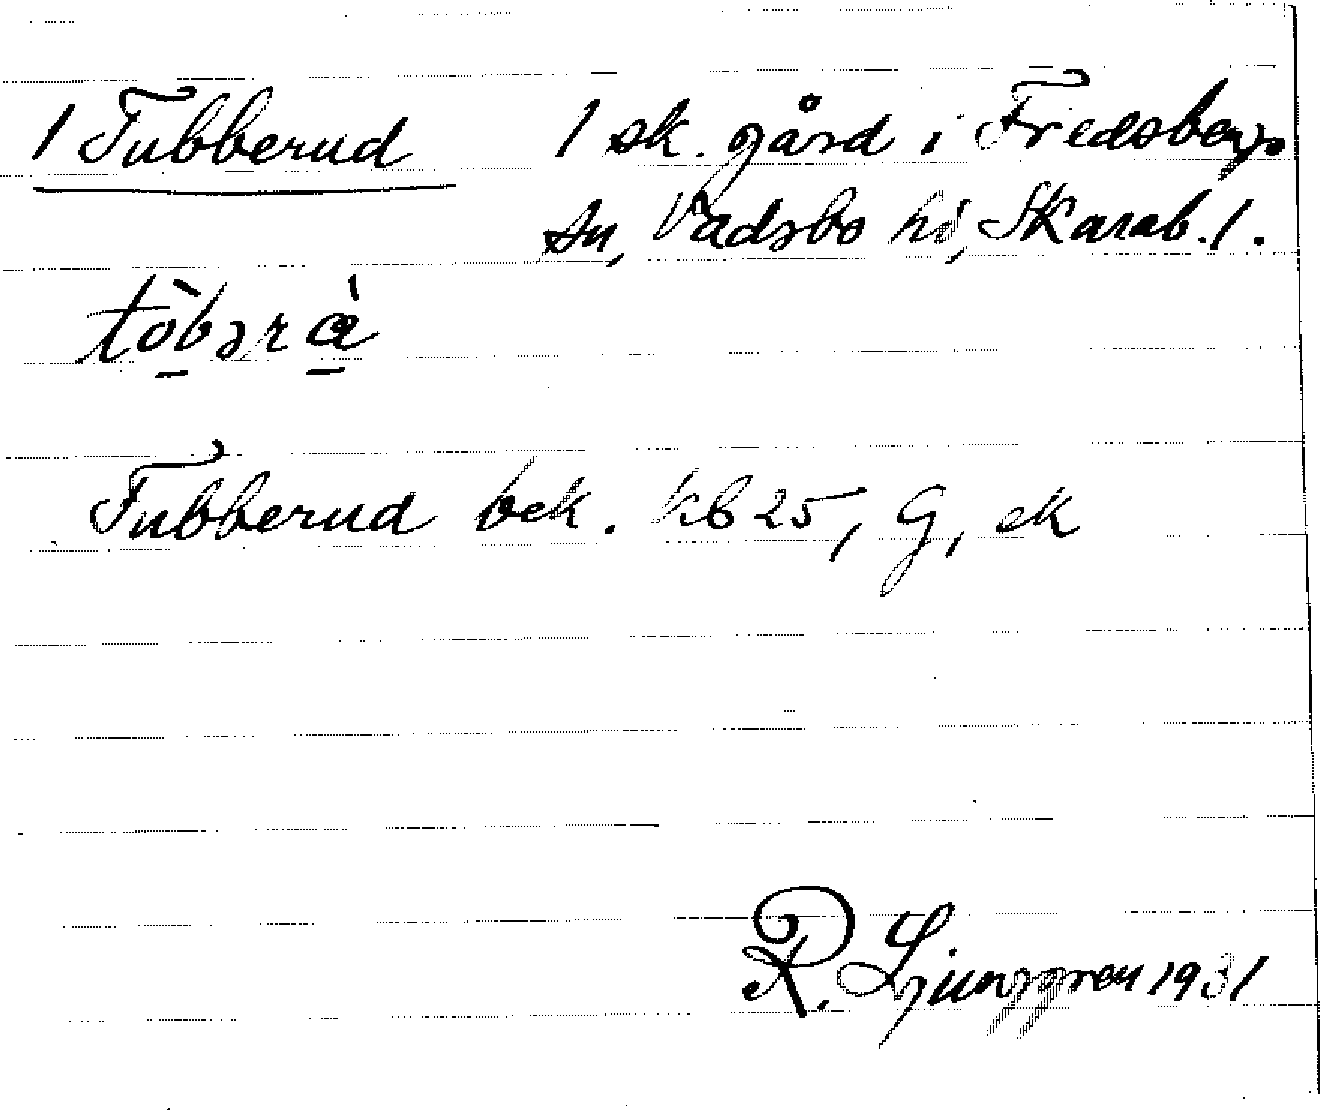 1 Tubberud 1 sk. gård i Fredsbergs
sn, Vadsbo hd, Skarab. l.
tòbərà̤
Tubberud bek. kb 25, G, ek
R. Ljunggren 1931